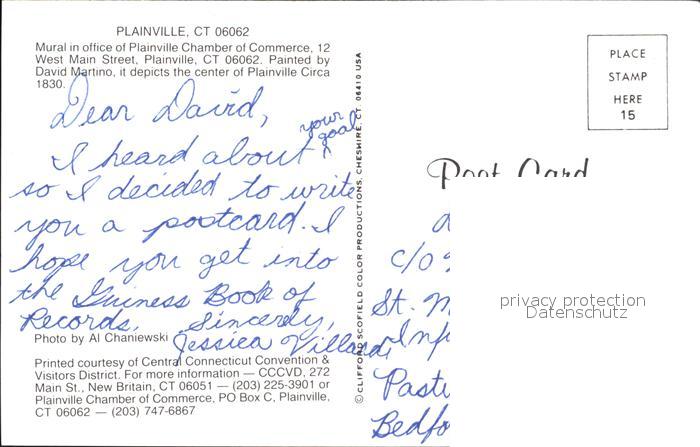 PLAINVILLE, CT 06062
Mural in office of Plainville Chamber of Commerce, 12
West Main Street, Plainville, CT 06062. Painted by
David Martino, it depicts the center of Plainville Circa
1830.
Dear David,
your
goal
I heard about ^
so I decided to write
you a postcard. I
hope you get into
the Guiness Book of
Records.
Sincerely,
Jessica Villardi
Photo by Al Chaniewski
Printed courtesy of Central Connecticut Convention &
Visitors District. For more information — CCCVD, 272
Main St., New Britain, CT 06051 — (203) 225-3901 or
Plainville Chamber of Commerce, PO Box C, Plainville,
CT 06062 — (203) 747-6867
© CLIFFORD SCOFIELD COLOR PRODUCTIONS, CHESHIRE, CT. 06410 USA
PLACE
STAMP
HERE
15
Post Card
c/o
St. M
Inf
Paste
Bedfo
privacy protection
Datenschutz